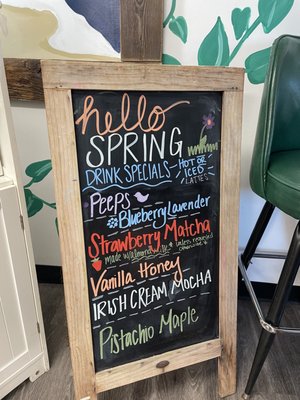 hello
SPRING
DRINK SPECIALS
HOT OR
ICED
LATTES
PEEPS
Blueberry Lavender
Strawberry Matcha
made w/almond milk
unless requested
otherwise
Vanilla Honey
IRISH CREAM MOCHA
Pistachio Maple